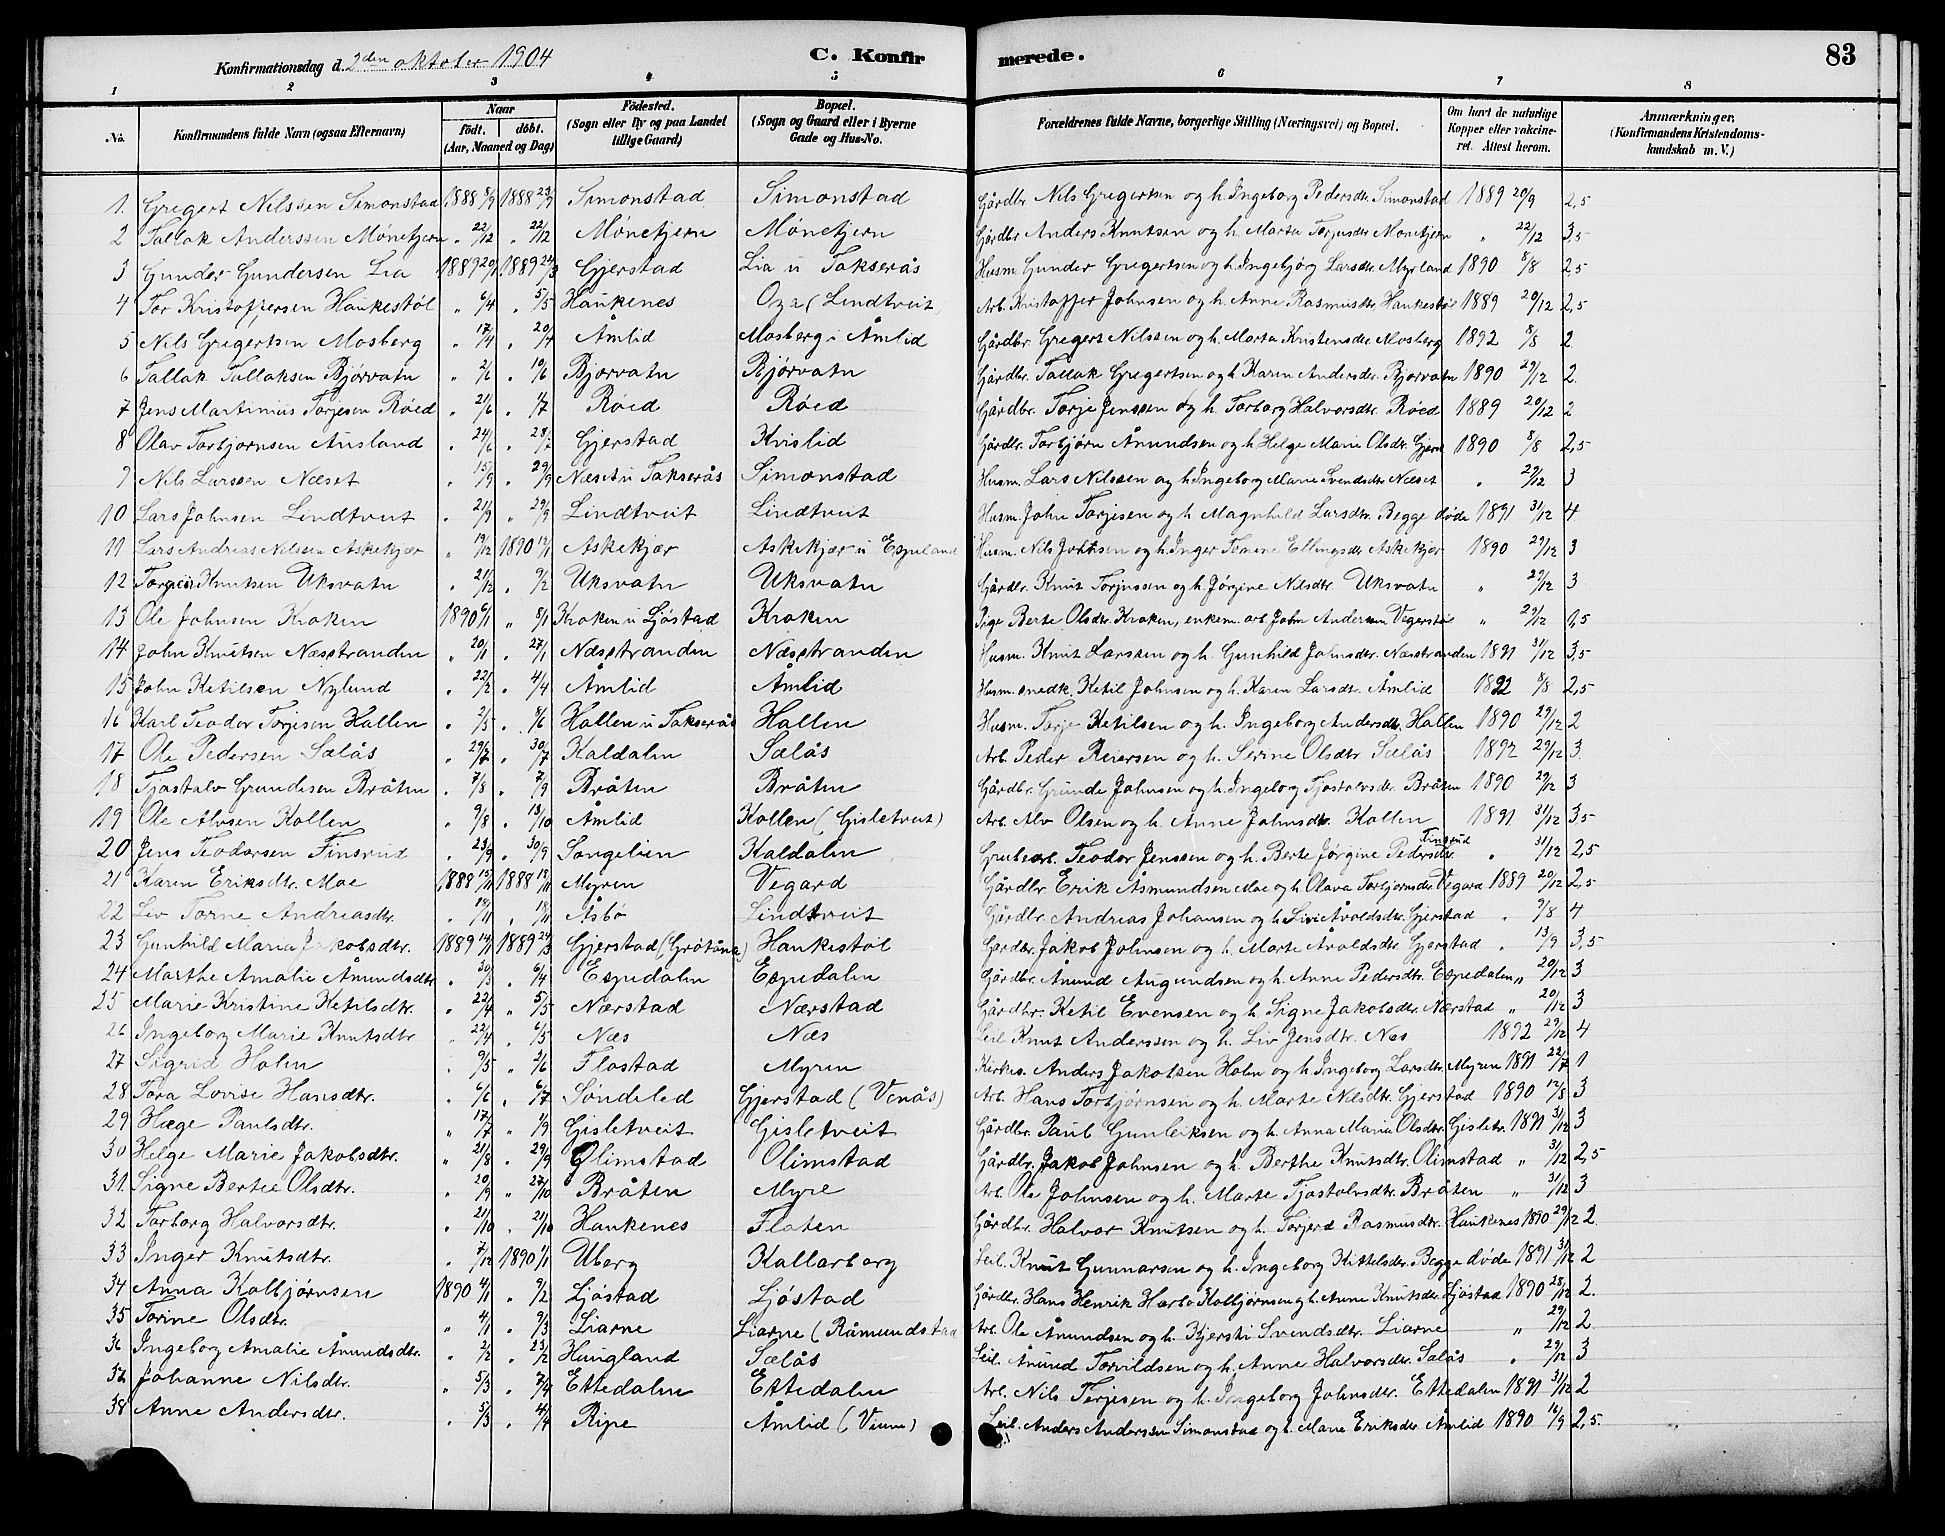 Konfirmationsdag d. 2den oktober 1904 C. Konfirmerede. 83
1 2 3 4 5 6 7 8
No. Konfirmandens fulde Navn (ogsaa Efternavn) Naar født. døbt. (Aar, Maaned og Dag) Fødested. (Sogn eller By og paa Landet tillige Gaard) Bopæl. (Sogn og Gaard eller i Byerne Gade og Hus-No. Forældrenes fulde Navne, borgerlige Stilling (Næringsvei) og Bopæl. Om havt de naturlige Kopper eller vakcineret. Attest herom. Anmærkninger, (Konfirmandens Kristendomskundskab m. V.)
1. Gregert Nilssen Simonstad 1888 8/9 1888 23/9 Simonstad Simonstad Gårdbr. Nils Gregertsen og h. Ingeborg Pedersdtr. Simonstad 1889 20/9 2,5
2 Tallak Anderssen Mønetjern " 22/12 " 22/12 Mønetjern Mønetjern Gårdbr Anders Knutsen og h. Marta Torjusdtr Mønetjern " 22/12 3,5
3 Gunder Gundersen Lia 1889 20/1 1889 24/3 Gjerstad Lia u Takserås Husm. Gunder Gregertsen og h. Ingebjørg Larsdtr. Myrland 1890 8/8 2,5
4 Tor Kristoffersen Haukestøl " 6/4 " 5/5 Haukenes (Lindtveit) Arb. Kristoffer Johnsen og h. Anne Rasmusdtr. Haukestøl 1889 20/12 2,5
5 Nils Gregertsen Mosberg " 17/4 " 20/4 Åmlid Mosberg i Åmlid Gårdbr. Gregert Nilssen og h. Marta Kristensdtr. Mosberg 1892 8/8 2
6 Tallak Tallaksen Bjørvatn " 2/6 " 10/6 Bjørvatn Bjørvatn Gårdbr. Tallak Gregertsen og h Karen Andersdtr. Bjørvatn 1890 29/12 2.
7 Jens Martinius Torjesen Røed " 21/6 " 1/7 Røed Røed Gårdbr. Torje Jenssen og h. Torborg Halvorsdtr. Røed 1889 20/12 2
8 Olav Torbjørnsen Ausland " 24/6 " 28/7 Gjerstad Kvislid Gårdbr. Torbjørn Ånundsen og h. Helge Marie Olsdtr. 1890 8/8 2,5
9 Nils Larssen Næset " 15/9 " 29/9 Næset u Takserås Simonstad Husm. Lars Nilssen og h. Ingeborg Marie Svendsdtr Næset " 29/12 3
10 Lars Johnsen Lindtveit " 21/9 " 29/9 Lindtveit Lindtveit Husm. John Torjesen og h. Magnhild Larsdtr. Begge døde 1891 31/12 4
11 Lars Andreas Nilssen Askekjær " 19/12 1890 12/1 Askekjær Askekjær u Espeland Husm. Nils Johnsen og h. Inger Tomine Ellingsdtr Askekjær 1890 29/12 3
12 Knutsen Uksvatn " 21/12 " 9/2 Uksvatn Uksvatn Gårdbr. Knut Torjussen og h. Jørgine Nilsdtr. Uksvatn " 29/12 3
13 Ole Johnsen Kroken 1890 6/1 " 8/1 Kroken u Ljøstad Kroken Pige Berte Olsdtr. Kroken, enkem. arb. John Andersen " 29/12 1,5
14 John Knutsen Næsstranden " 20/1 " 27/1 Næsstranden Næsstranden Husm. Knut Larssen og h. Gunhild Johnsdtr. Næsstranden 1891 31/12 3,5
15 John Ketilsen Nylund " 22/2 " 4/4 Åmlid Åmlid Husm. snedk. Ketil Johnsen og h. Karen Larsdtr. Åmlid 1892 8/8 2,5
16 Karl Teodor Torjesen Hallen " 2/5 " 8/6 Hallen u Takserås Hallen Husm. Terje Ketilsen og h. Ingeborg Andersdtr. Hallen 1890 29/12 2
17 Ole Pedersen Sælås " 29/7 " 30/7 Kaldalen Sælås Arb. Peder Reiersen og h. Serine Olsdtr. Sælås 1892 29/12 3
18 Tjøstolv Grundesen Bråten " 7/8 " 7/9 Bråten Bråten Gårdbr. Grunde Johnsen og h. Ingeborg Tjøstolvsdtr. Bråten 1890 29/12 3
19 Ole Alvsen Kollen " 9/8 " 13/10 Åmlid Kollen (Gisletveit) Arb. Alv Olsen og h. Anne Johnsdtr. Kollen 1891 31/12 3,5
20 Jens Teodorsen Finsrud " 23/9 " 30/9 Songelien Kaldalen Grubearb. Teodor Jenssen og h. Berte Jørgine Pedersdtr. Finsrud " 31/12 2,5
21 Karen Eriksdtr. Moe 1888 1888 Myren Vegard Gårdbr. Erik Åsmundsen Moe og h. Olava Torbjørnsdtr. Vegard 1889 20/12 2,5
22 Liv Torne Andreasdtr. " 18/11 " 18/11 Åsbø Lindtveit Gårdbr. Andreas Johansen og h. Åvoldsdtr. Gjerstad " 9/8 4
23 Gunhild Maria Jakobsdtr. 1889 14/1 1889 24/3 Gjerstad (Grøtåna) Haukestøl Gårdbr. Jakob Johnsen og h. Marte Åvoldsdtr Gjerstad " 13/9 3,5
24 Marthe Amalie Ånundsdtr " 30/3 " 6/4 Espedalen Espedalen Gårdbr. Ånund Augundsen og h. Anne Pedersdtr. Espedalen " 20/12 3
25 Marie Kristine Ketilsdtr. " 22/4 " 5/5 Nærstad Nærstad Gårdbr. Ketil Evensen og h. Signe Jakobsdtr. Nærstad " 20/12 3
26 Ingeborg Marie Knutsdtr " 22/4 " 6/5 Næs Næs Leil. Knut Anderssen og h. Liv Jensdtr. Næs 1892 29/12 4
27 Sigrid Holm " 9/5 " 2/6 Flostad Myren Kirkes. Anders Jakobsen Holm og h. Ingeborg Larsdtr. Myren 1891 22/7 1
28 Tora Lovise Hansdtr. " 6/6 " 6/7 Søndeled Gjerstad (Venås) Arb. Hans Torbjørnsen og h. Marte Nilsdtr. Gjerstad 1890 12/8 3
29 Hæge Paulsdtr. " 17/7 " 1/9 Gisletveit Gisletveit Gårdbr. Paul Gunleiksen og h. Anna Maria Olsdtr. Gisletv. 1891 31/12 3
30 Helge Marie Jakobsdtr. " 21/8 " 29/9 Olimstad Olimstad Gårdbr. Jakob Johnsen og h. Berthe Knutsdtr. Olimstad " 31/12 2,5
31 Signe Bertie Olsdtr. " 20/9 " 27/10 Bråten Myre Arb. Ole Johnsen og h. Marte Tjøstolvsdtr. Bråten " 31/12 3
32 Torborg Halvorsdtr. " 21/10 " 21/10 Haukenes Floten Gårdbr. Halvor Knutsen og h. Torjerd Rasmusdtr. Haukenes 1890 29/12 2.
33 Inger Knutsdtr. " 7/12 1890 1/1 Uberg Kallarberg Leil. Knut Gunnarsen og h. Ingeborg Kittelsdtr. Begge døde 1891 31/12 2
34 Anna Kolbjørnsen 1890 4/1 " 9/2 Ljøstad Ljøstad Gårdbr. Hans Henrik Kolbjørnsen og h. Anne Knutsdtr. Ljøstad 1890 28/12 2.
35 Torine Olsdtr. " 4/1 " 9/3 Liarne Liarne (Råmundstad Arb. Ole Ånundsen og h. Kjersti Svendsdtr. Liarne " 29/12 2
36 Ingeborg Amalie Ånundsdtr. " 2/2 " 23/2 Hungland Sælås Leil. Ånund Torvildsen og h. Anne Halvorsdtr. Sælås " 29/12 3
37 Johanne Nilsdtr. " 5/3 " 7/4 Ettedalen Ettedalen Arb. Nils Terjesen og h. Ingeborg Johnsdtr. Ettedalen 1891 31/12 2
38 Anne Andersdtr. " 5/3 " 4/4 Ripe Åmlid (Vium) Leil. Anders Anderssen Simonstad og h. Marie Eriksdtr Åmlid 1890 16/9 2,5.